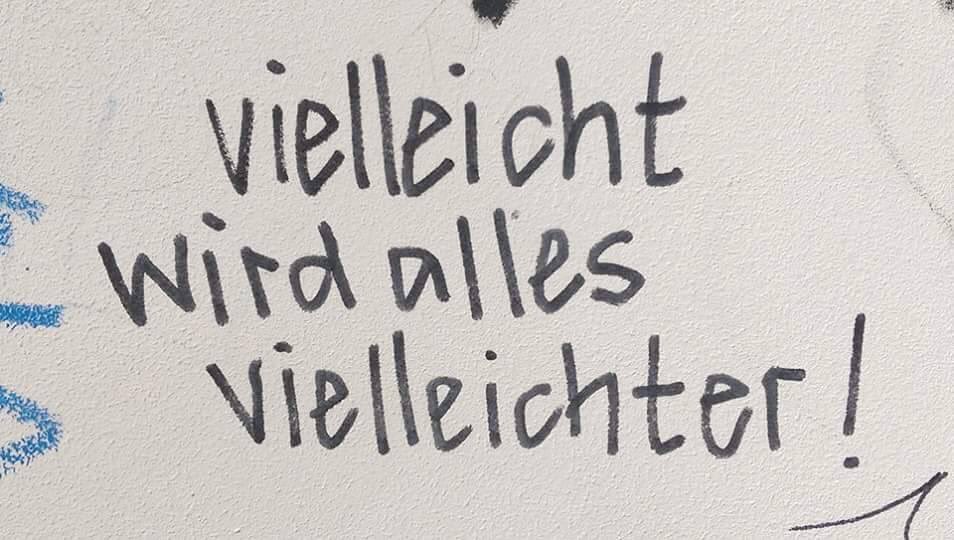 vielleicht
wird alles
vielleichter!